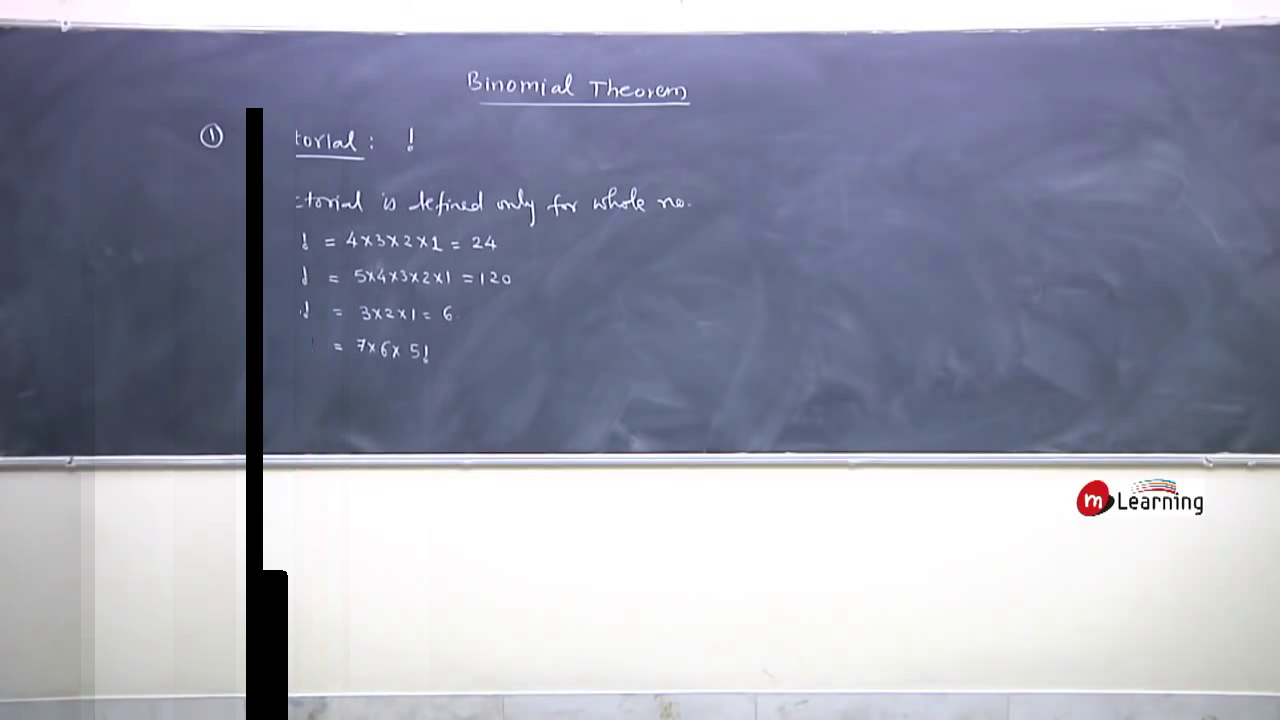 Binomial Theorem
① torial : !
torial is defined only for whole no.
! = 4×3×2×1 = 24
! = 5×4×3×2×1 = 120
! = 3×2×1 = 6
= 7×6× 5!
m Learning